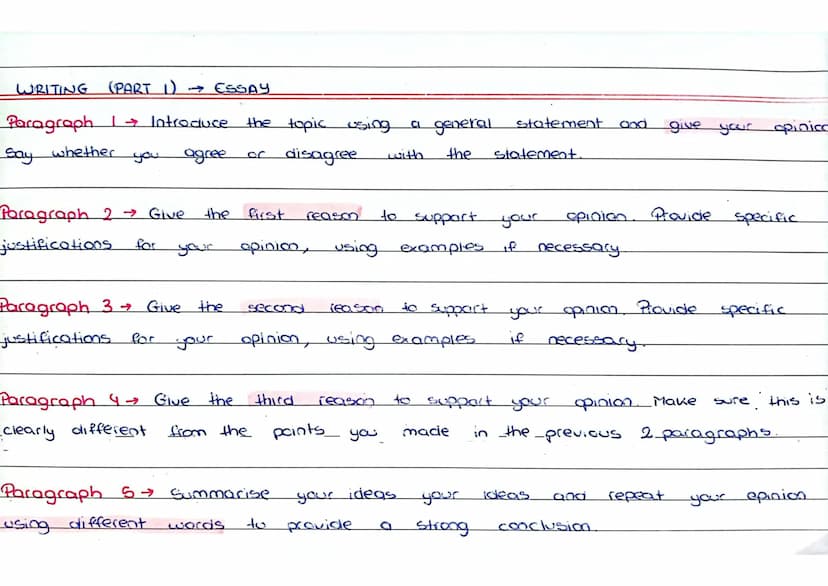 WRITING (PART 1) → ESSAY
Paragraph 1 → Introduce the topic using a general statement and give your opinion
Say whether you agree or disagree with the statement.
Paragraph 2 → Give the first reason to support your opinion. Provide specific
justifications for your opinion, using examples if necessary
Paragraph 3 → Give the second reason to support your opinion. Provide specific
justifications for your opinion, using examples if necessary.
Paragraph 4 → Give the third reason to support your opinion. Make sure this is
clearly different from the points you made in the previous 2 paragraphs.
Paragraph 5 → Summarise your ideas your ideas and repeat your opinion
using different words to provide a strong conclusion.